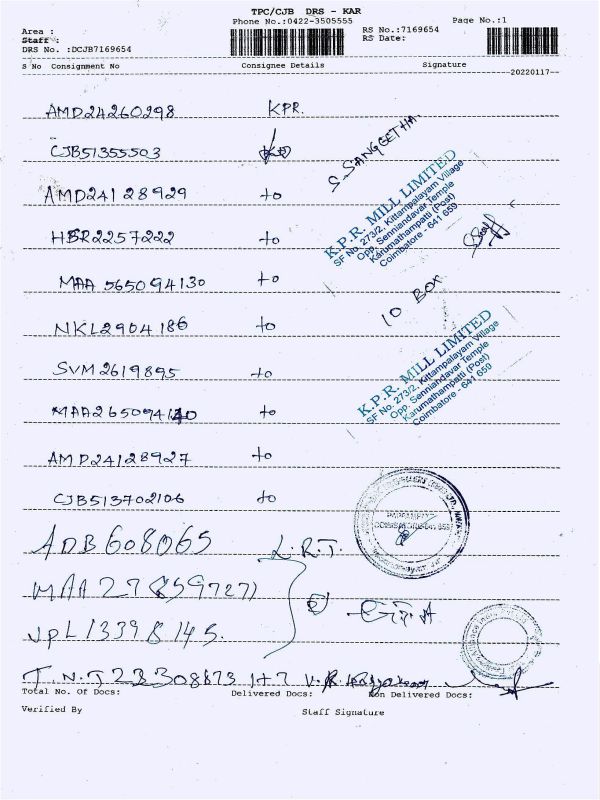 TPC/CJB DRS - KAR
Phone No.:0422-3505555
Page No.:1
Area :
Staff :
DRS No. :DCJB7169654
RS No.:7169654
RS Date:
S No Consignment No Consignee Details Signature
20220117
AMD24260298 KPR.
S. SANGEETHA.
CJB51355503
AMD24128929 to
K.P.R. MILL LIMITED
SF No. 273/2, Kittampalayam Village
Opp. Senniandavar Temple
Karumathampatti (Post)
Coimbatore - 641 659
HBR2257222 to
MAA 565094130 to
10 BOX
NKL2904186 to
K.P.R. MILL LIMITED
SF No. 273/2, Kittampalayam Village
Opp. Senniandavar Temple
Karumathampatti (Post)
Coimbatore - 641 659
SVM2619895 to
to
AMD24128927 to
CJB513702106 to
ADB608065 L.R.T.
JPL13398145.
Total No. Of Docs: Delivered Docs: Non Delivered Docs:
Verified By Staff Signature